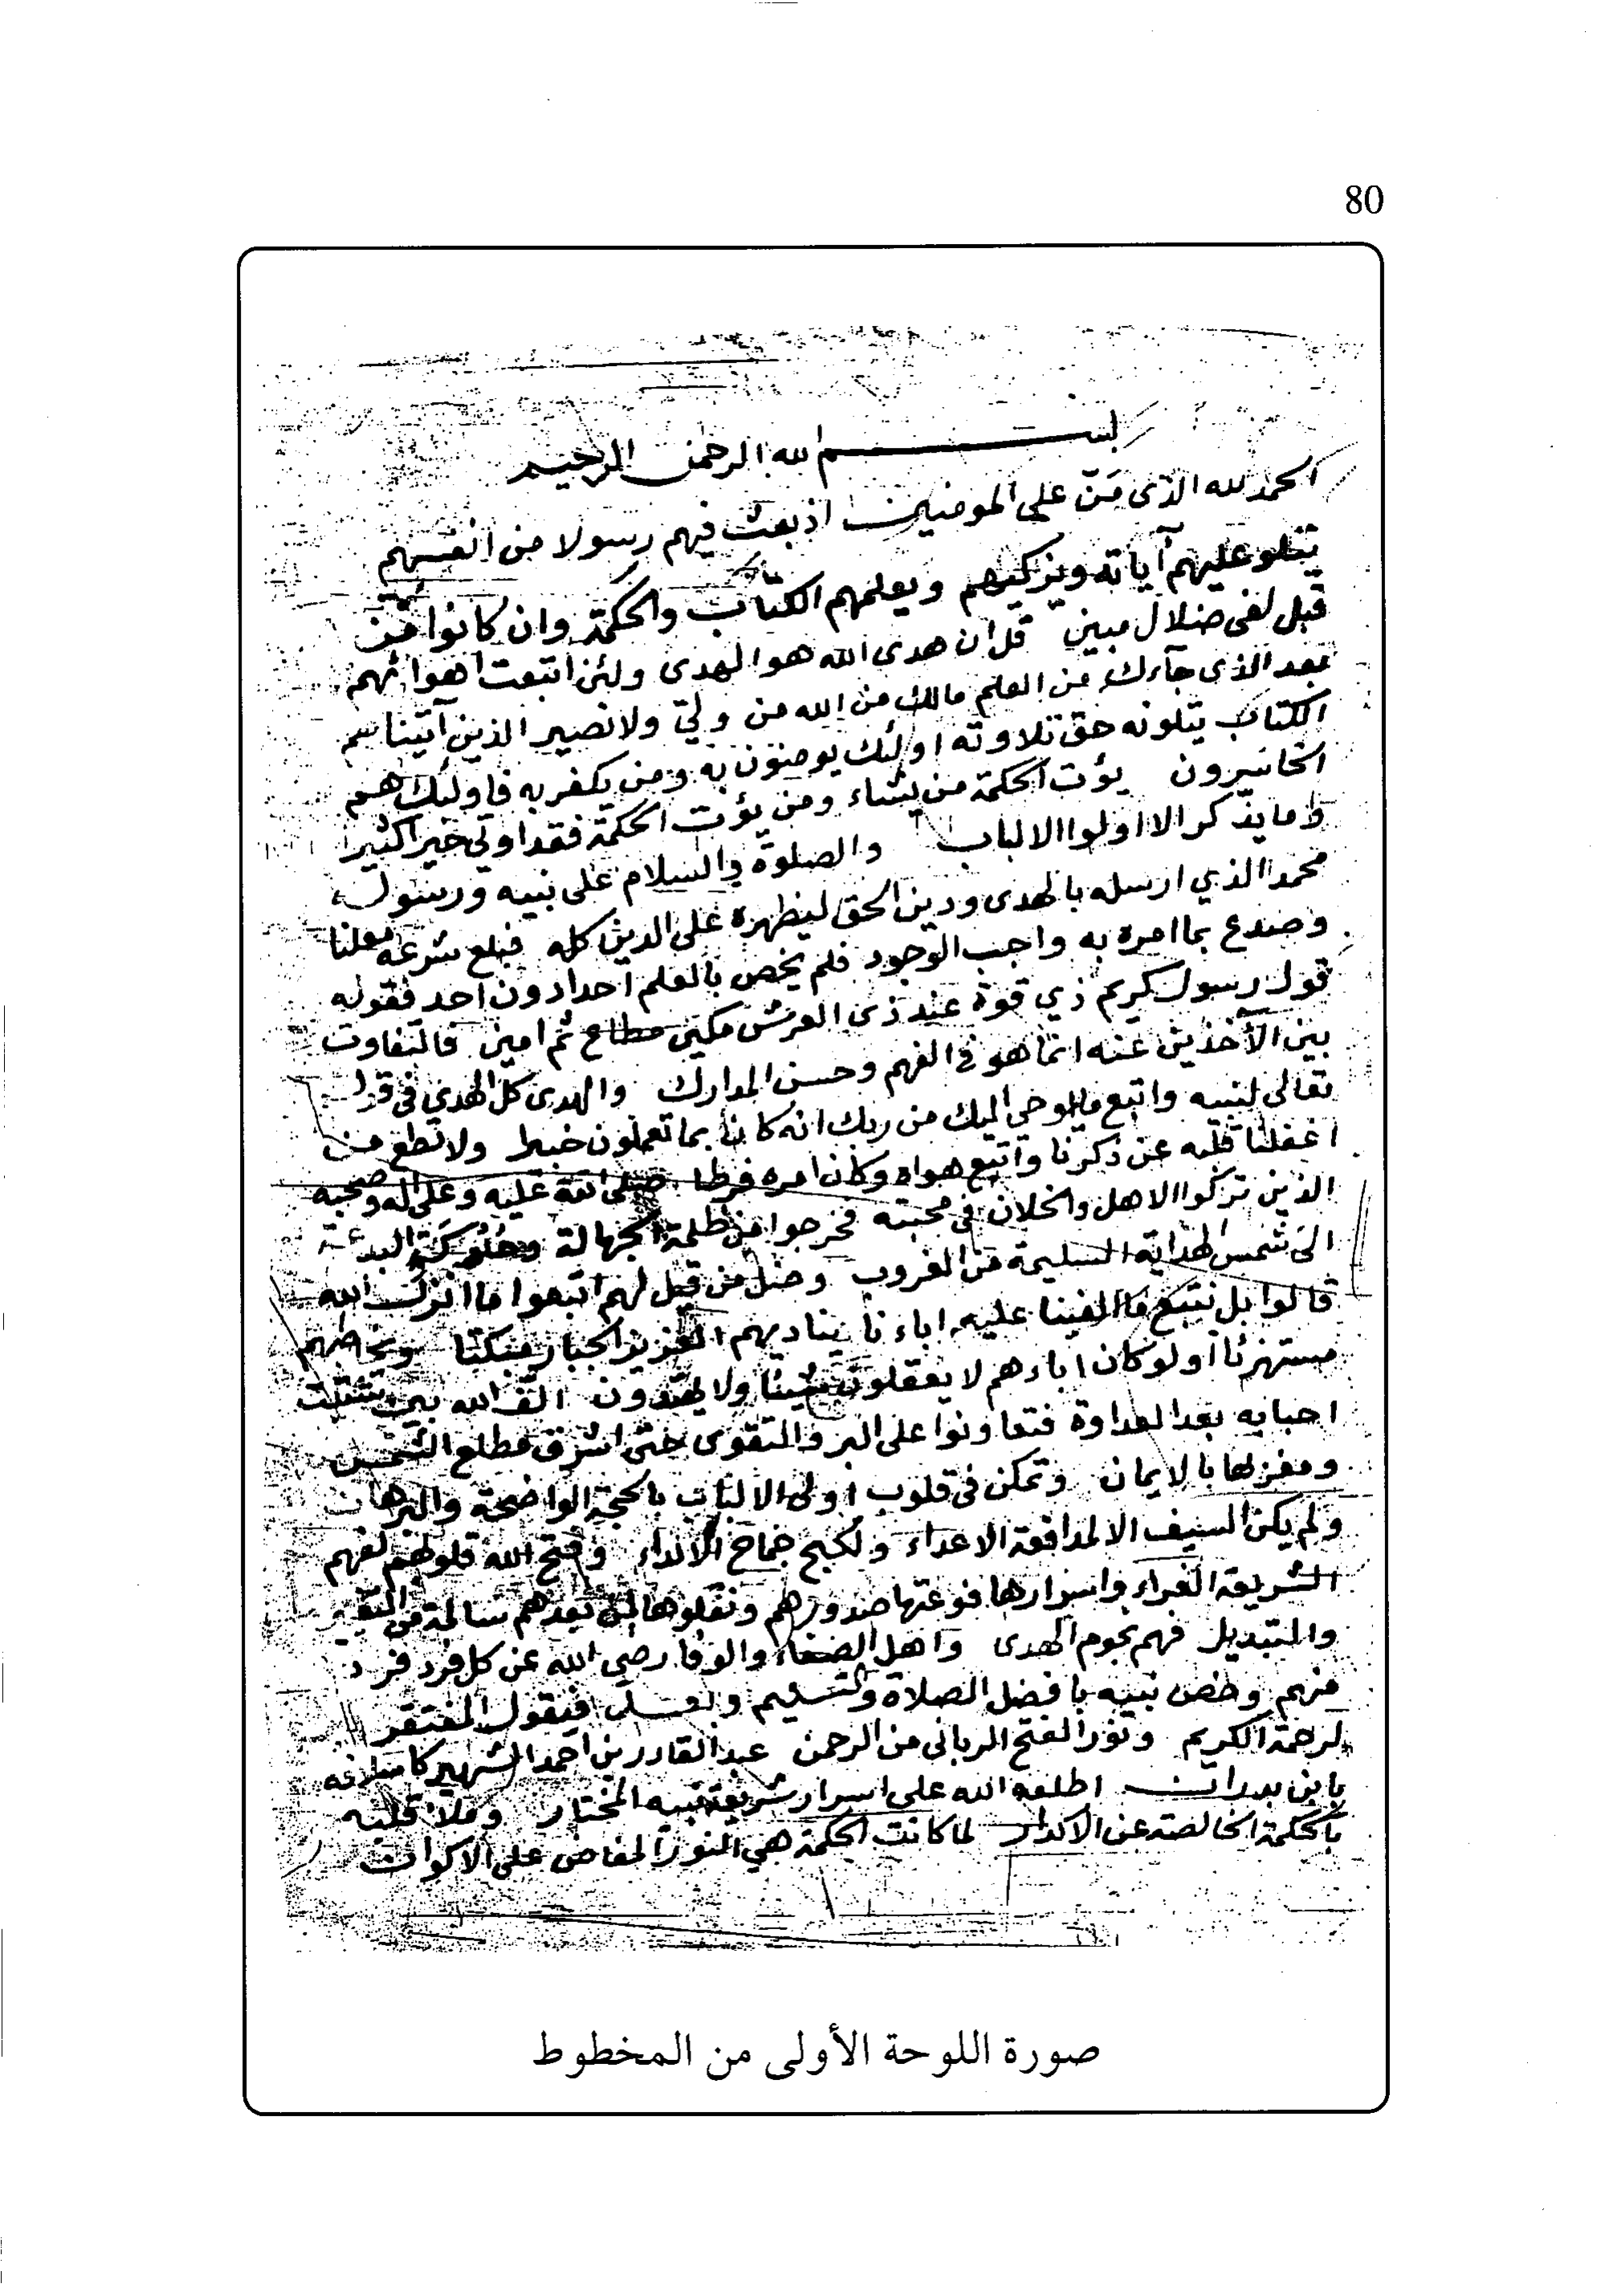 80
بسم الله الرحمن الرحيم
الحمد لله الذي مَنّ على المومنين اذ بعث فيهم رسولا من انفسهم
يتلو عليهم آياته ويزكيهم ويعلمهم الكتاب والحكمة وان كانوا من
قبل لفي ضلال مبين قل ان هدى الله هو الهدى ولئن اتبعت اهوائهم
بعد الذي جآءك من العلم مالك من الله من وليّ ولا نصير الذين آتيناهم
الكتاب يتلونه حق تلاوته اولئك يومنون به ومن يكفر به فاولئك هم
الخاسرون يؤت الحكمة من يشاء ومن يؤت الحكمة فقد اوتي خيرا كثيرا
وما يذكر الا اولوا الالباب والصلوة والسلام على نبيه ورسوله
محمد الذي ارسله بالهدى ودين الحق ليظهره على الدين كله فبلغ شرعه معلنا
وصدع بما امره به واجب الوجود فلم يخص بالعلم احدا دون احد فقوله
قول رسول كريم ذي قوة عند ذي العرش مكين مطاع ثم امين فالتفاوت
بين الآخذين عنه انما هو في الفهم وحسن المدارك والهدى كل الهدى في قوله
تعالى لنبيه واتبع ما يوحى اليك من ربك انه كان بما تعملون خبيرا ولا تطع من
اغفلنا قلبه عن ذكرنا واتبع هواه وكان امره فرطا صلى الله عليه وعلى اله وصحبه
الذين تركوا الاهل والخلان في محبته فخرجوا من ظلمة الجهالة البدعة
الى شمس الهداية السليمة من الغروب وضل من قيل لهم اتبعوا ما انزل الله
قالوا بل نتبع ما الفينا عليه اباءنا يناديهم العزيز الجبار مبكتا ويخاطبهم
مستهزئا أولو كان اباءهم لا يعقلون شيئا ولا يهتدون الّف الله بين
احبابه بعد العداوة فتعاونوا على البر والتقوى حتى اشرق مطلع الشمس
ومغربها بالايمان وتمكن في قلوب اولى الالباب بالحجة الواضحة والبرهان
ولم يكن السيف الا لمدافعة الاعداء ولكبح جماح الالداء وفتح الله قلوبهم لفهم
الشريعة الغراء واسرارها فوعتها صدورهم ونقلوها لمن بعدهم سالمة من التغيير
والتبديل فهم نجوم الهدى واهل الصفاء والوفا رضي الله عن كل فرد فرد
منهم وخص نبيه بافضل الصلاة والتسليم وبعد فيقول المفتقر
لرحمة الكريم ونور الفتح الرباني من الرحمن عبد القادر بن احمد الشهير كاسلافه
بابن بدران اطلعه الله على اسرار شريعة نبيه المختار وملأ قلبه
بالحكمة الخالصة عن الاكدار لما كانت الحكمة هي النور المفاض على الاكوان
صورة اللوحة الأولى من المخطوط